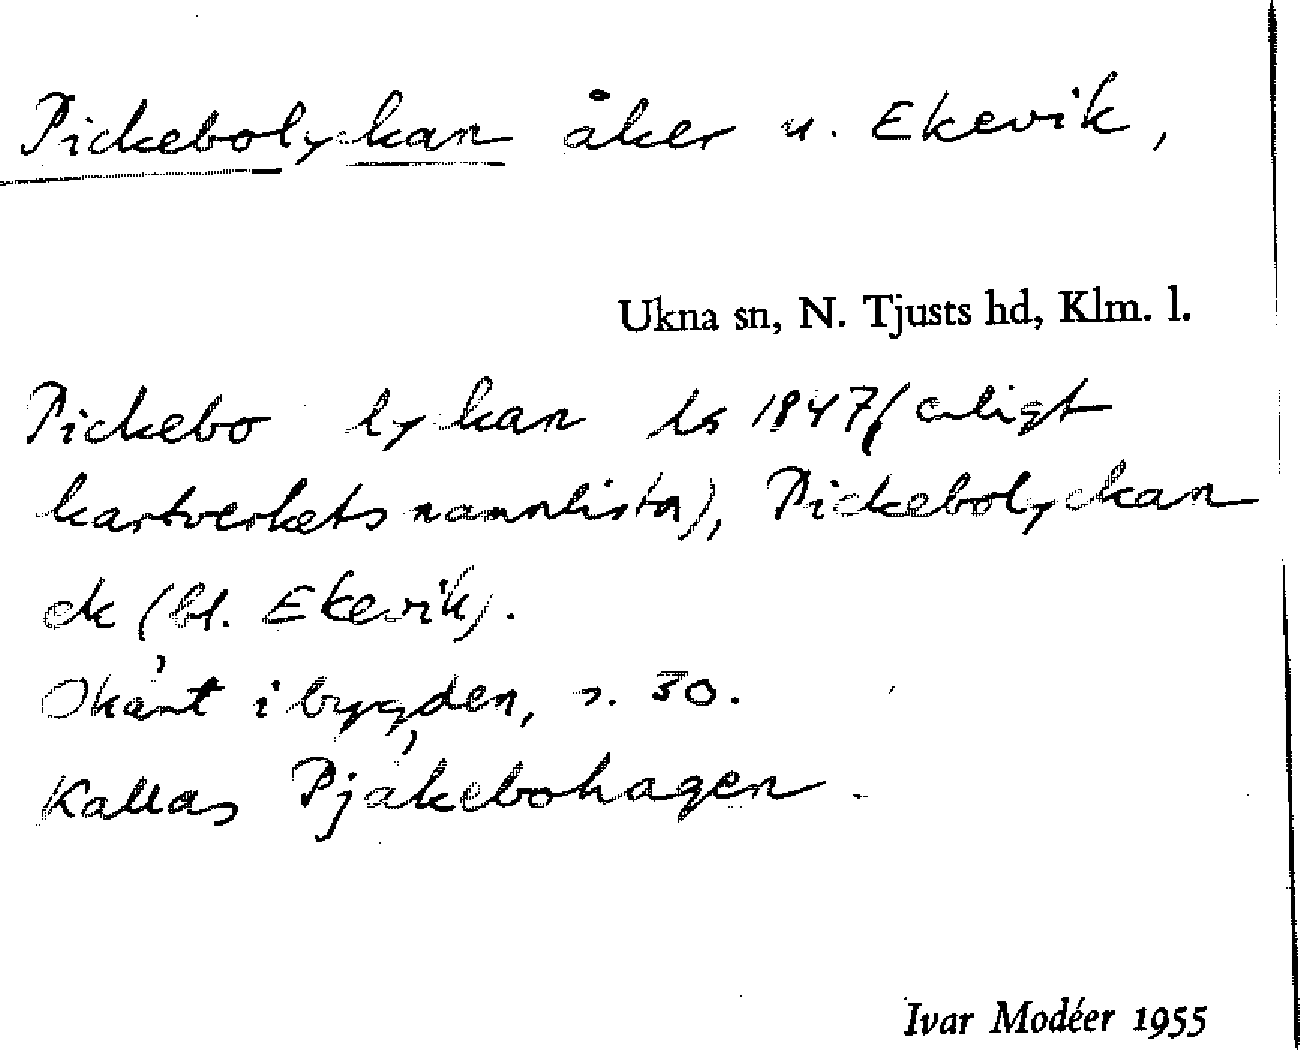 Pickebolyckan åker u. Ekevik,
Ukna sn, N. Tjusts hd, Klm. l.
Pickebo lykan ls 1847 (enligt
kartverkets namnlista), Pickebolyckan
ek (bl. Ekevik).
Okänt i bygden, s. 30.
Kallas Pjäkebohagen.
Ivar Modéer 1955